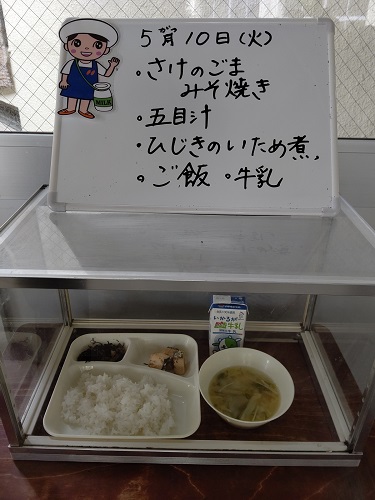 5月10日(火)
・さけのごま
みそ焼き
・五目汁
・ひじきのいため煮
・ご飯 ・牛乳
MILK
いかるが
牛乳